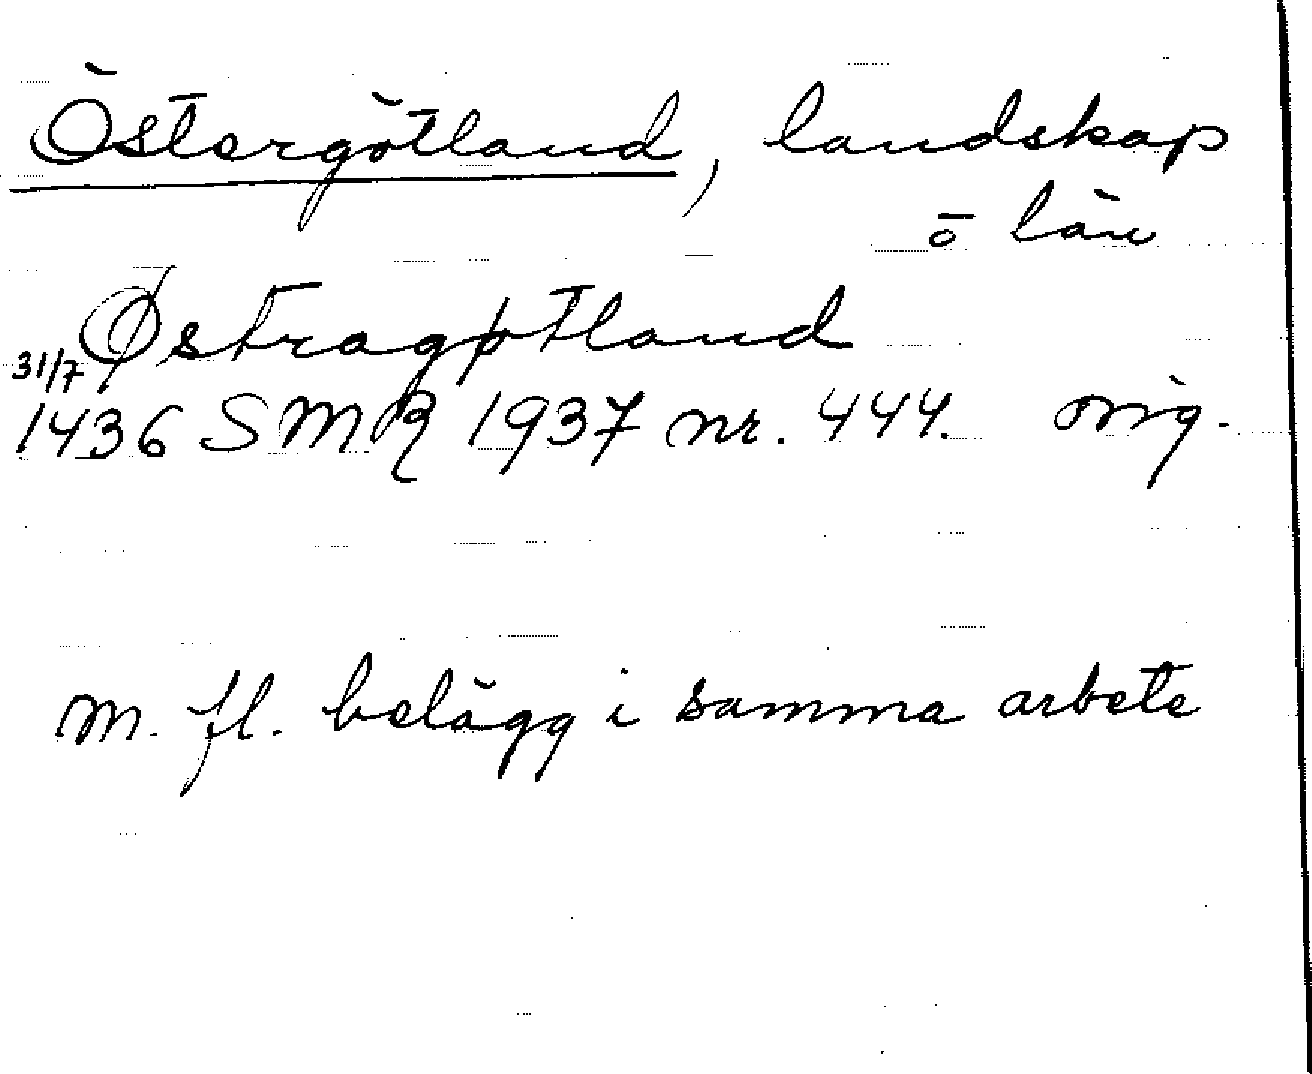 Östergötland, landskap
o län
Østragøtland
31/7
1436 SMR 1937 nr. 444. orig.
m. fl. belägg i samma arbete